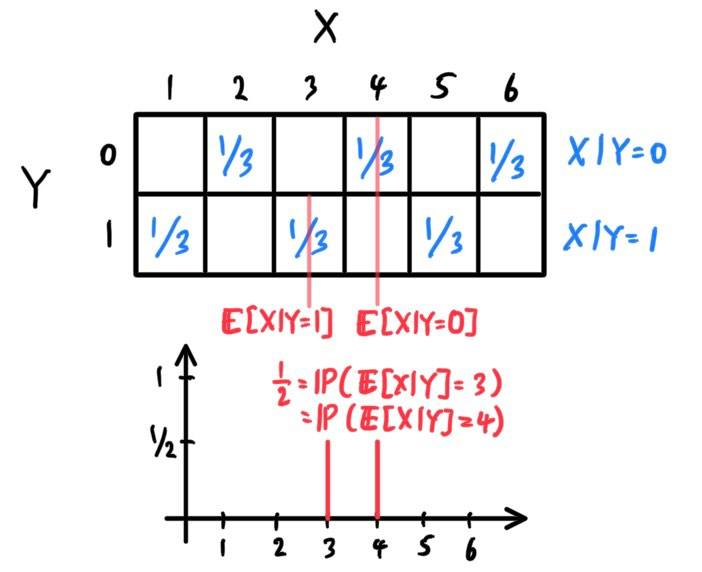 X
1 2 3 4 5 6
0 1/3 1/3 1/3 X|Y=0
Y
1 1/3 1/3 1/3 X|Y=1
E[X|Y=1] E[X|Y=0]
1
1/2 = IP(E[X|Y]=3)
= IP(E[X|Y]=4)
1/2
1 2 3 4 5 6